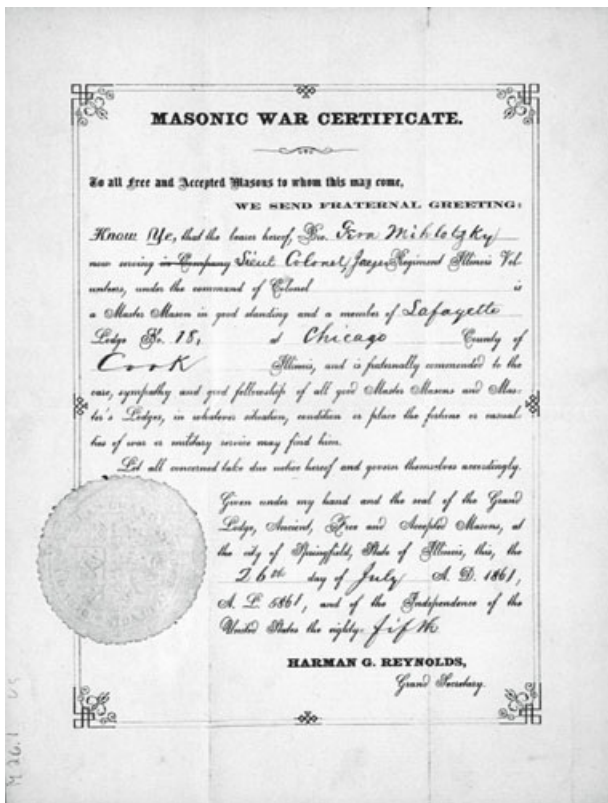 MASONIC WAR CERTIFICATE.
To all Free and Accepted Masons to whom this may come,
WE SEND FRATERNAL GREETING:
Know Ye, that the bearer hereof, Bro. Mihlotzky
now serving in Company Lieut Colonel, Jaeger Regiment Illinois Vol-
unteers, under the command of Colonel is
a Master Mason in good standing and a member of Lafayette
Lodge No. 18, at Chicago County of
Cook Illinois, and is fraternally commended to the
care, sympathy and good fellowship of all good Master Masons and Mas-
ter's Lodges, in whatever situation, condition or place the fortune or casual-
ties of war or military service may find him.
Let all concerned take due notice hereof and govern themselves accordingly.
Given under my hand and the seal of the Grand
Lodge, Ancient, Free and Accepted Masons, at
the city of Springfield, State of Illinois, this, the
26th day of July A. D. 1861,
A. L. 5861, and of the Independence of the
United States the eighty-fifth
HARMAN G. REYNOLDS,
Grand Secretary.
M 26.1